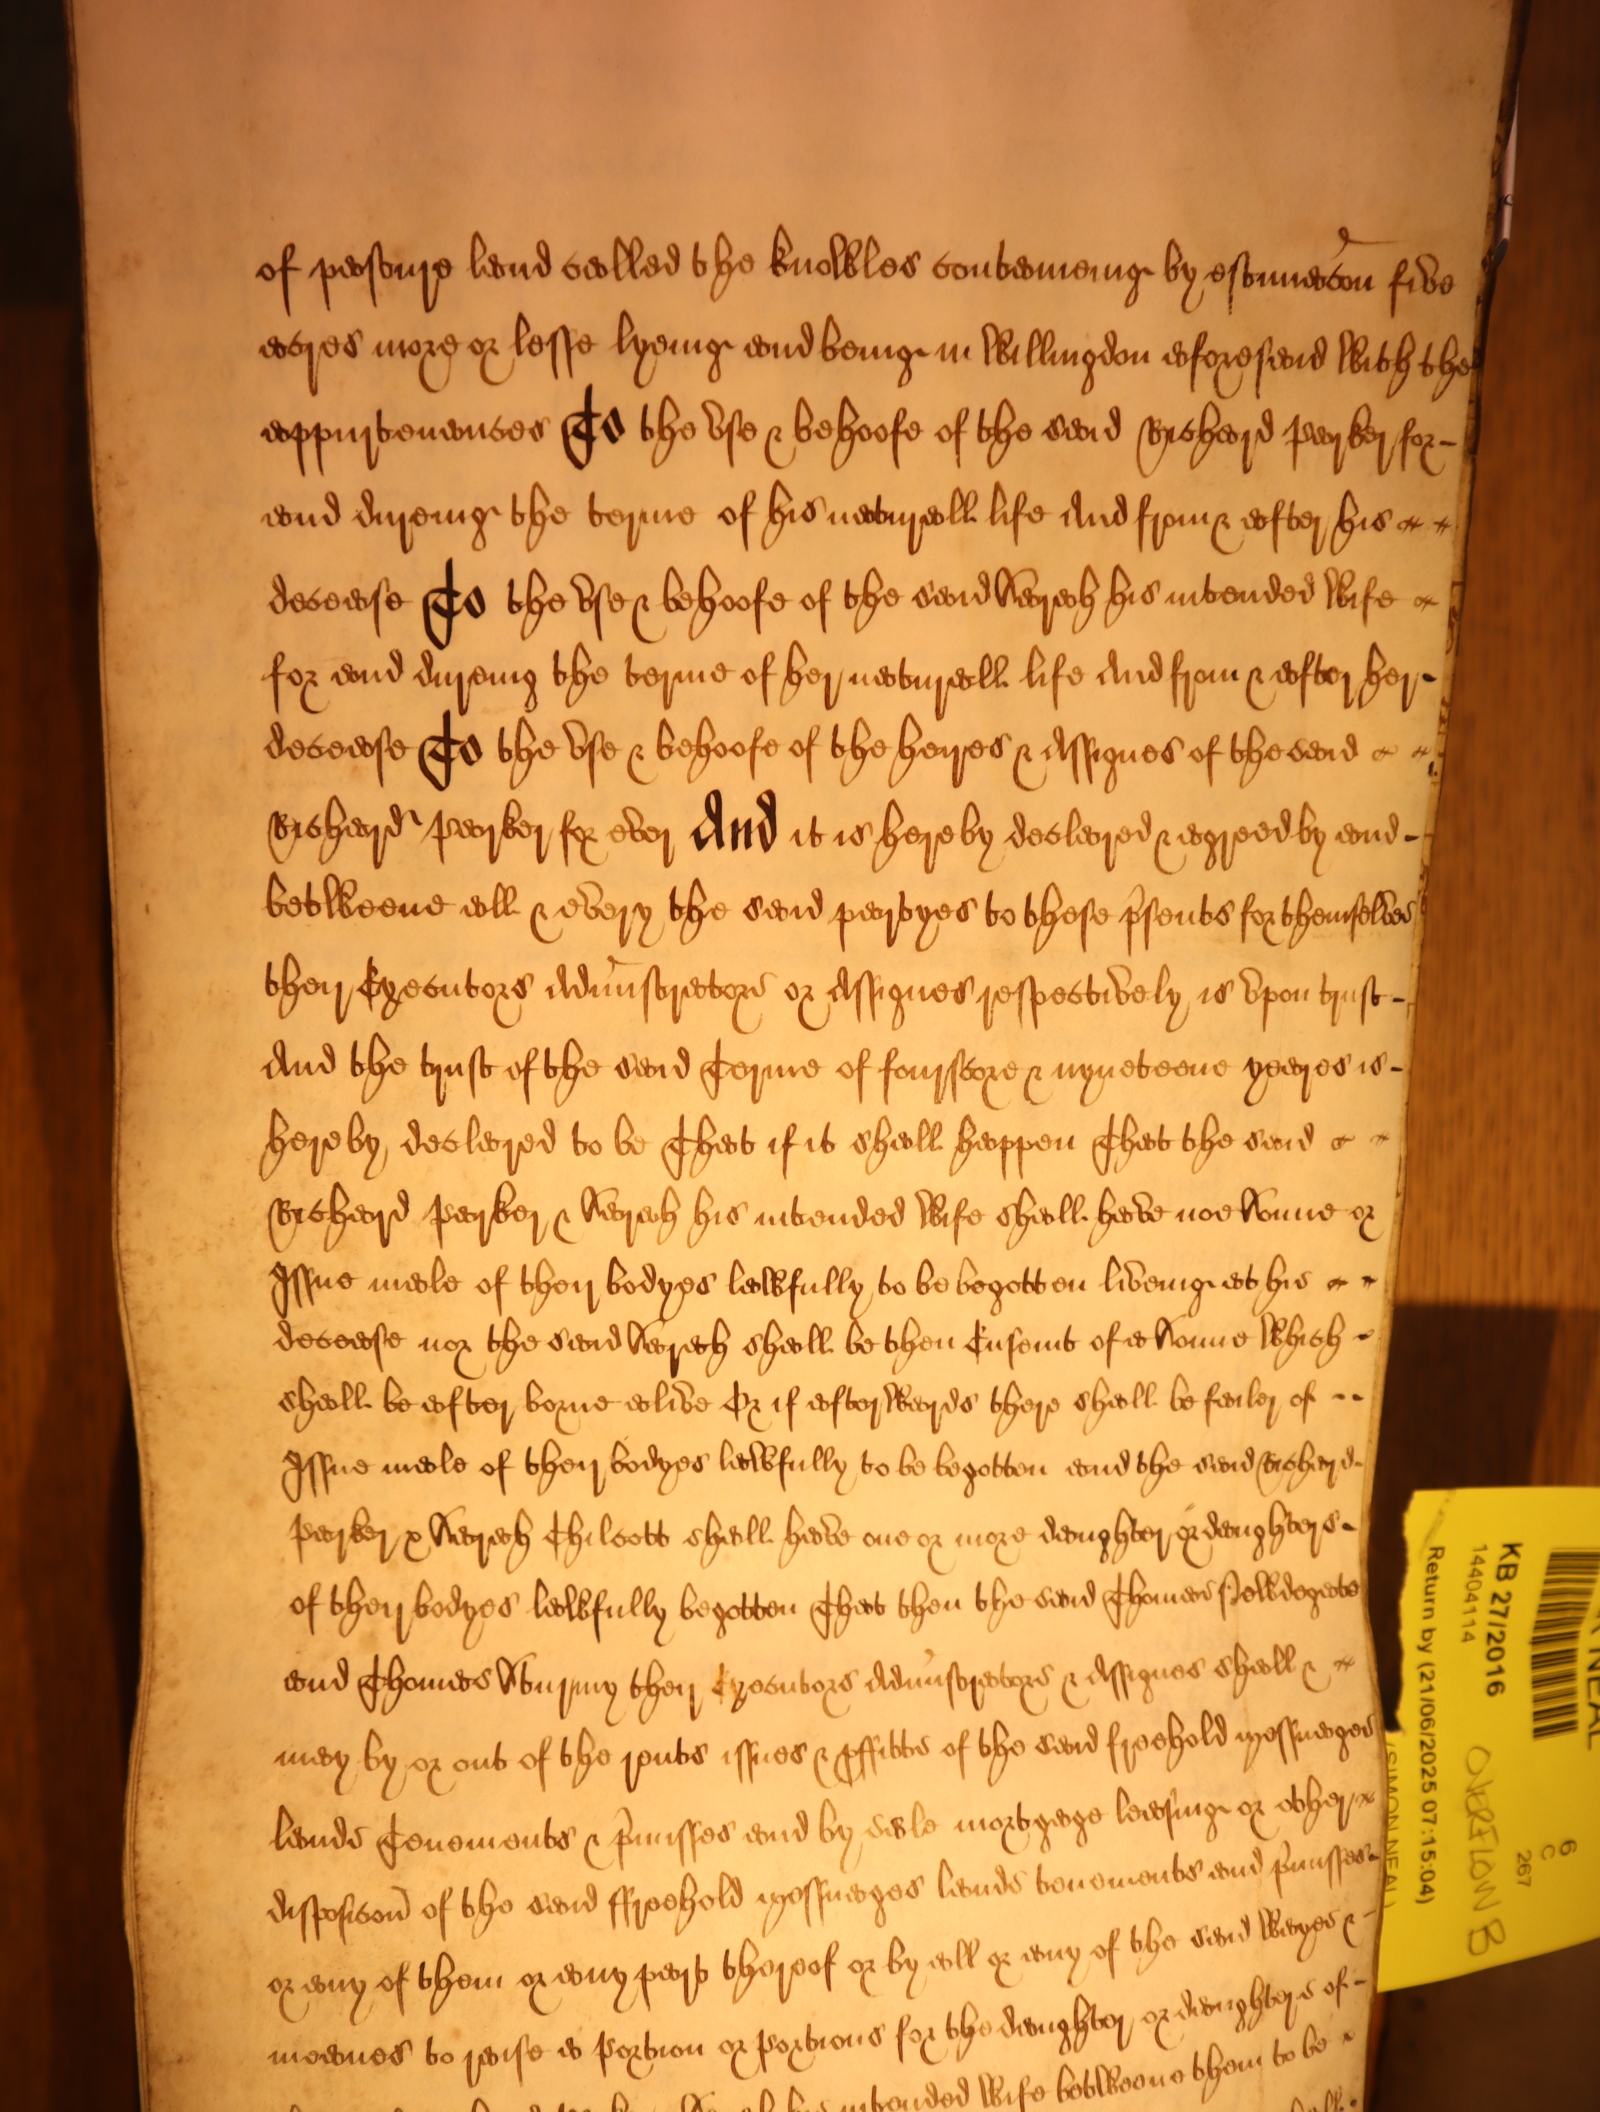 of pasture land called the Knowles conteineing by estimacon five
acres more or lesse lyeing and being in Willingdon aforesaid With the
appurtenances To the vse & behoofe of the said Richard Parker for
and dureing the terme of his naturall life And from & after his
decease To the vse & behoofe of the said Sarah his intended Wife
for and dureing the terme of her naturall life And from & after her
decease To the vse & behoofe of the heires & Assignes of the said
Richard Parker for ever And it is hereby declared & agreed by and
betweene all & every the said partyes to these psents for themselves
their Executors Administrators or Assignes respectively is vpon trust
And the trust of the said Terme of fourscore & nyneteene yeares is
hereby declared to be That if it shall happen That the said
Richard Parker & Sarah his intended Wife shall have noe Sonne or
Issue male of their bodyes lawfully to be begotten liveing at his
decease nor the said Sarah shall be then Enseint of a Sonne Which
shall be after borne alive Or if afterwards there shall be failer of
Issue male of their bodyes lawfully to be begotten and the said Richard
Parker & Sarah Chilcott shall have one or more daughter or daughters
of their bodyes lawfully begotten That then the said Thomas
and Thomas their Executors Administrators & Assignes shall &
may by or out of the rents issues & pffitts of the said freehold messuages
lands Tenements & pmisses and by sale mortgage leasing or other
disposicon of the said ffreehold messuages lands tenements and pmisses
or any of them or any part thereof or by all or any of the said Wayes &
meanes to raise a portion or portions for the daughter or daughters of
intended Wife betweene them to be
NEAL
KB 27/2016
14404114
Return by (21/06/2025 07:15:04)
(SIMON NEAL)
OVERFLOW B
6
C
267